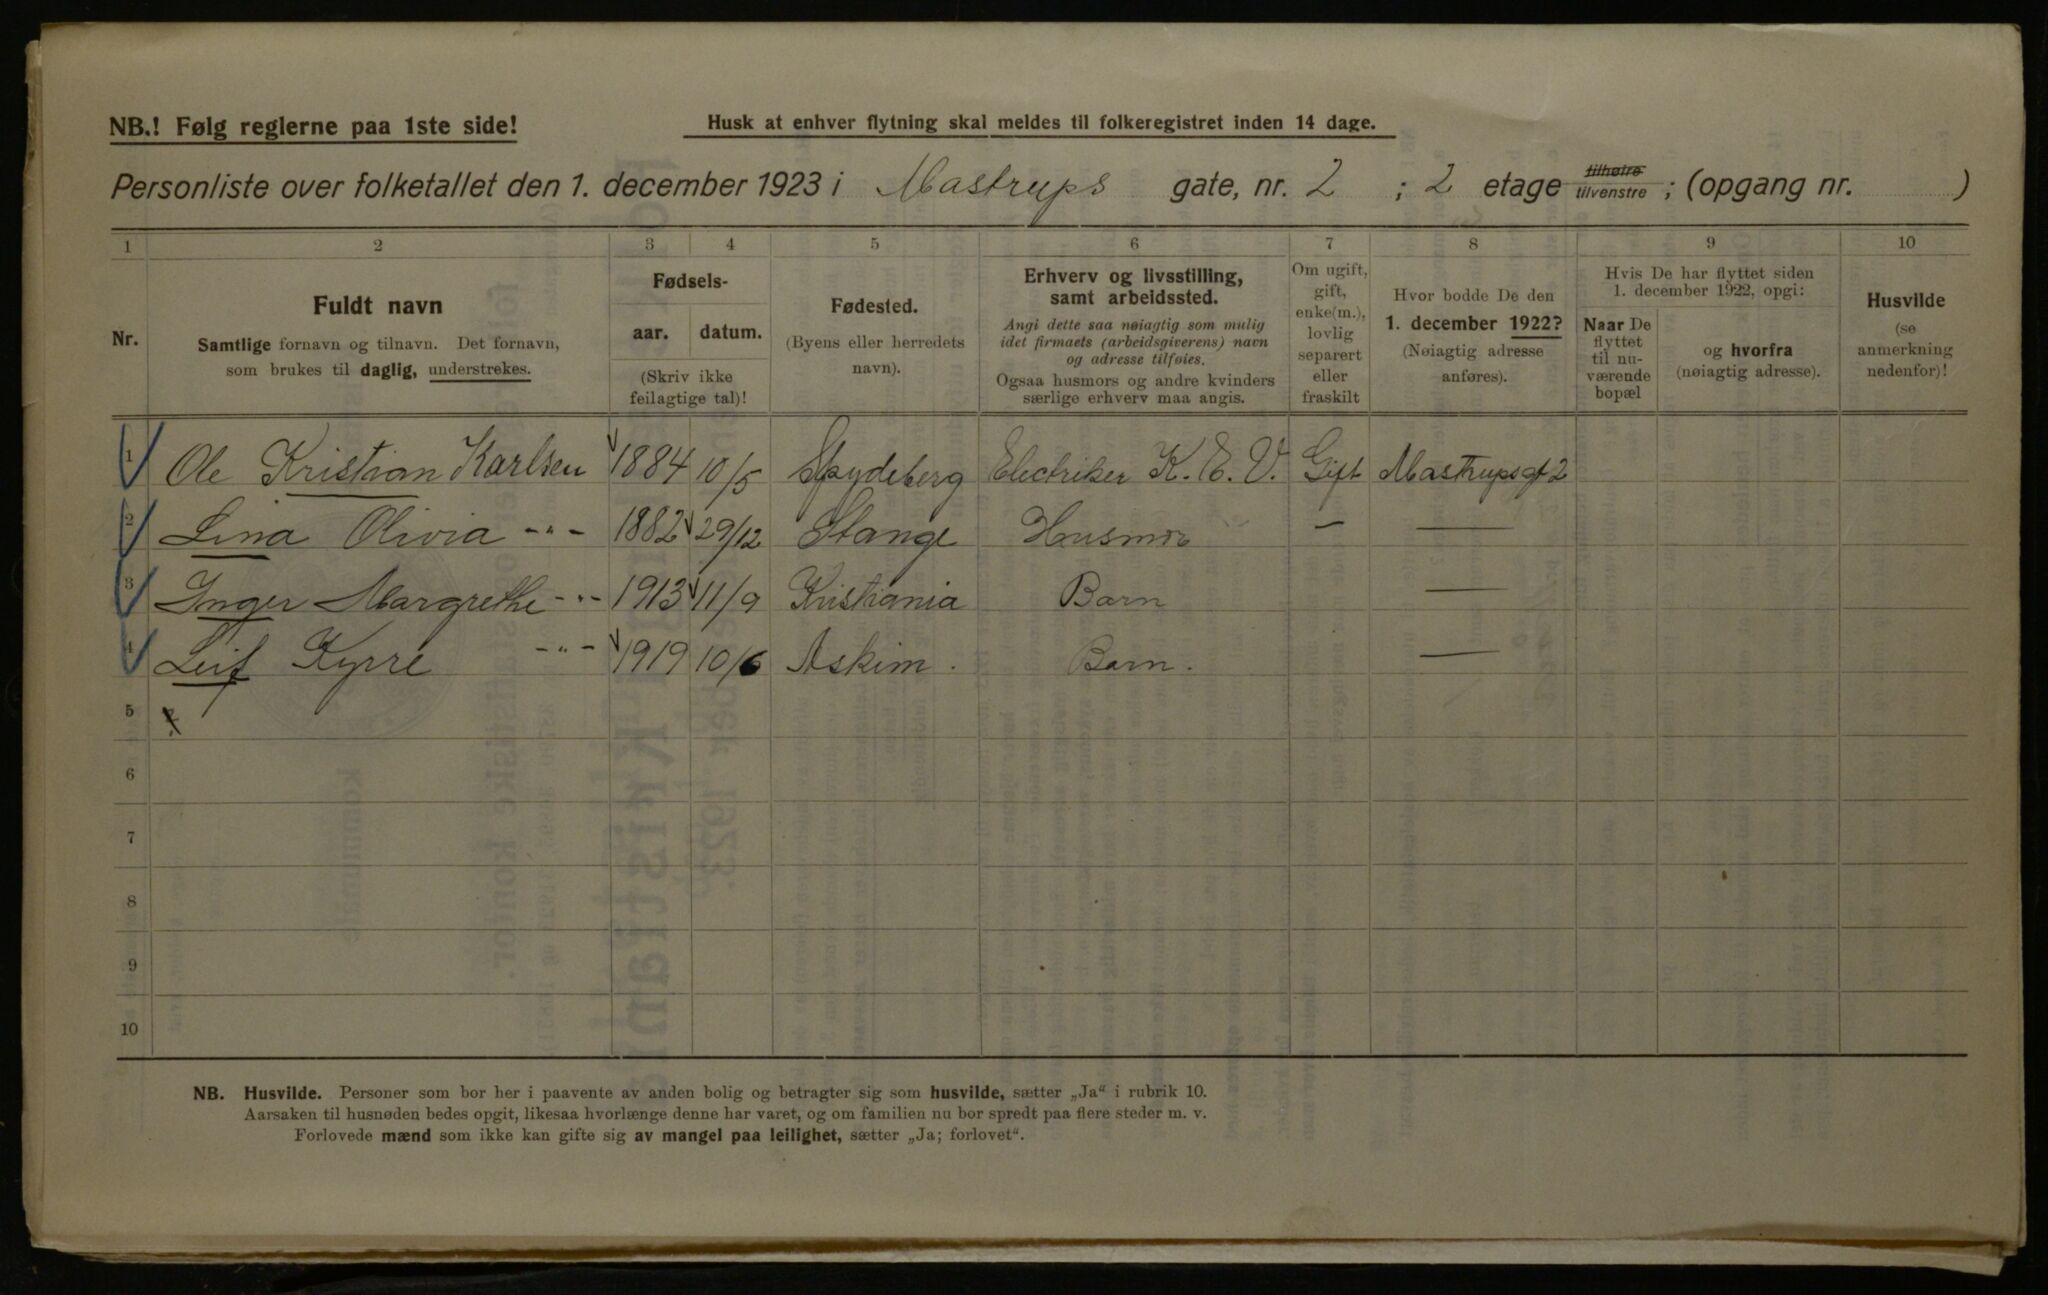 NB.! Følg reglerne paa 1ste side!
Husk at enhver flytning skal meldes til folkeregistret inden 14 dage.
Personliste over folketallet den 1. december 1923 i Mastrups gate, nr. 2 ; 2 etage tilhøire tilvenstre ; (opgang nr. )
1 2 3 4 5 6 7 8 9 10
Nr.
Fuldt navn
Samtlige fornavn og tilnavn. Det fornavn,
som brukes til daglig, understrekes.
Fødsels-
aar. datum.
(Skriv ikke
feilagtige tal)!
Fødested.
(Byens eller herredets
navn).
Erhverv og livsstilling,
samt arbeidssted.
Angi dette saa nøiagtig som mulig
idet firmaets (arbeidsgiverens) navn
og adresse tilføies.
Ogsaa husmors og andre kvinders
særlige erhverv maa angis.
Om ugift,
gift,
enke(m.),
lovlig
separert
eller
fraskilt
Hvor bodde De den
1. december 1922?
(Nøiagtig adresse
anføres).
Hvis De har flyttet siden
1. december 1922, opgi:
Naar De
flyttet
til nu-
værende
bopæl
og hvorfra
(nøiagtig adresse).
Husvilde
(se
anmerkning
nedenfor)!
1 Ole Kristian Karlsen 1884 10/5 Spydeberg Electriker K. E. V. Gift Mastrupsgt 2
2 Lina Olivia -"- 1882 29/12 Stange Husmor — —
3 Inger Margrethe -"- 1913 11/9 Kristiania Barn —
4 Leif Kyrre -"- 1919 10/6 Askim. Barn. —
5
6
7
8
9
10
NB. Husvilde. Personer som bor her i paavente av anden bolig og betragter sig som husvilde, sætter „Ja“ i rubrik 10.
Aarsaken til husnøden bedes opgit, likesaa hvorlænge denne har varet, og om familien nu bor spredt paa flere steder m. v.
Forlovede mænd som ikke kan gifte sig av mangel paa leilighet, sætter „Ja; forlovet“.